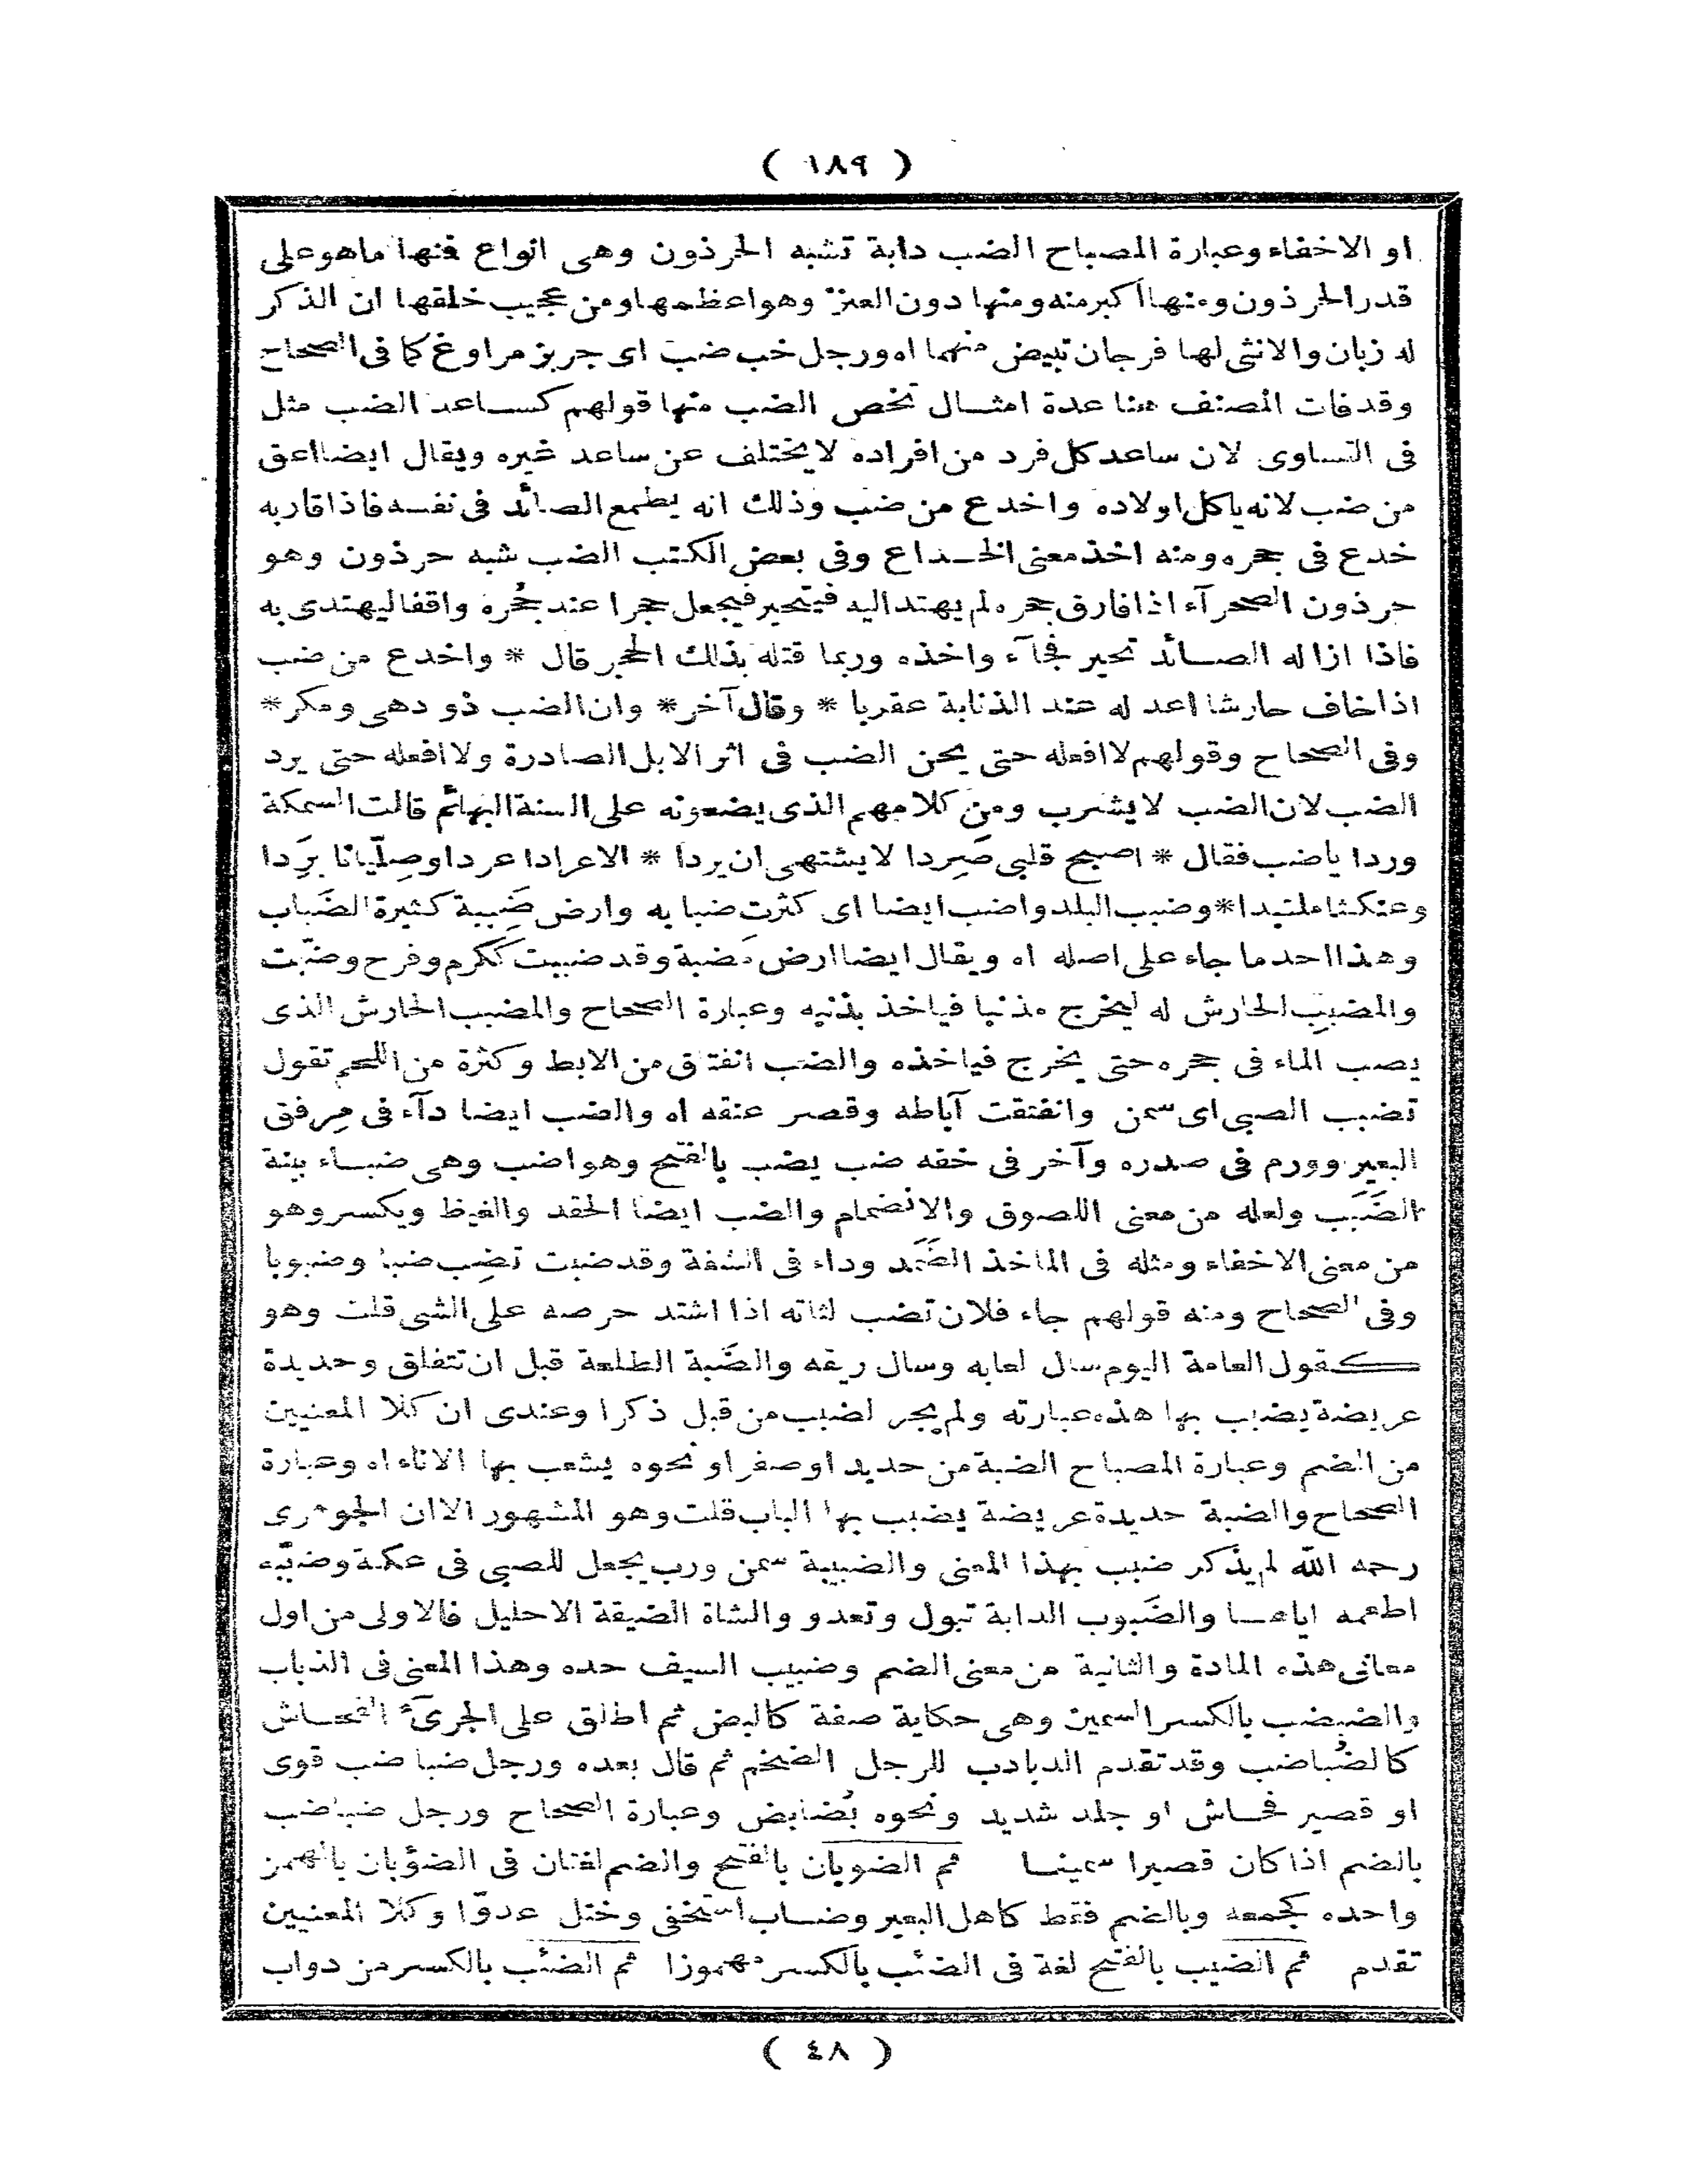 ( ١٨٩ )
او الاخفاء وعبارة المصباح الضب دابة تشبه الحرذون وهى انواع فمنها ماهو على
قدر الحرذون ومنها اكبر منه ومنها دون العنز وهو اعظمها ومن عجيب خلقها ان الذكر
له زبان والانثى لها فرجان تبيض منهما اه ورجل خب ضب اى جربز مراوغ كما فى الصحاح
وقد فات المصنف هنا عدة امثال تخص الضب منها قولهم كساعد الضب مثل
فى التساوى لان ساعد كل فرد من افراده لا يختلف عن ساعد غيره ويقال ايضا اعق
من ضب لانه ياكل اولاده واخدع من ضب وذلك انه يطمع الصائد فى نفسه فاذا قاربه
خدع فى جحره ومنه اخذ معنى الخداع وفى بعض الكتب الضب شبه حرذون وهو
حرذون الصحرآء اذا فارق جحره لم يهتد اليه فيتحير فيجعل حجرا عند جُحره واقفا ليهتدى به
فاذا ازاله الصائد تحير فجآء واخذه وربما قتله بذلك الحجر قال * واخدع من ضب
اذا خاف حارشا اعد له عند الذنابة عقربا * وقال آخر * وان الضب ذو دهى ومكر *
وفى الصحاح وقولهم لا افعله حتى يحن الضب فى اثر الابل الصادرة ولا افعله حتى يرد
الضب لان الضب لا يشرب ومن كلامهم الذى يضعونه على السنة البهائم قالت السمكة
وردا ياضب فقال * اصبح قلبى صَرِدا لا يشتهى ان يردا * الا عرادا عردا وصِلّيانا بَرِدا
وعنكثا ملتبدا * وضبب البلد واضب ايضا اى كثرت ضبابه وارض ضَبِبة كثيرة الضَباب
وهذا احد ما جاء على اصله اه ويقال ايضا ارض مَضبة وقد ضببت ككرم وفرح وضبّبت
والمضبِب الحارش له ليخرج مذنبا فياخذ بذنبه وعبارة الصحاح والمضبب الحارش الذى
يصب الماء فى جحره حتى يخرج فياخذه والضب انفتاق من الابط وكثرة من اللحم تقول
تضبب الصبى اى سمن وانفتقت آباطه وقصر عنقه اه والضب ايضا دآء فى مِرفق
البعير وورم فى صدره وآخر فى خفه ضب يضب بالفتح وهو اضب وهى ضباء بينة
الضَبَب ولعله من معنى اللصوق والانضمام والضب ايضا الحقد والغيظ ويكسر وهو
من معنى الاخفاء ومثله فى الماخذ الضَمَد وداء فى الشفة وقد ضبت تضِب ضبا وضبوبا
وفى الصحاح ومنه قولهم جاء فلان تضب لثاته اذا اشتد حرصه على الشى قلت وهو
كقول العامة اليوم سال لعابه وسال ريقه والضَبة الطلعة قبل ان تتفلق وحديدة
عريضة يضبب بها هذه عبارته ولم يجر لضبب من قبل ذكرا وعندى ان كلا المعنيين
من الضم وعبارة المصباح الضبة من حديد او صفر او نحوه يشعب بها الاناء اه وعبارة
الصحاح والضبة حديدة عريضة يضبب بها الباب قلت وهو المشهور الا ان الجوهرى
رحمه الله لم يذكر ضبب بهذا المعنى والضبيبة سمن ورب يجعل للصبى فى عكة وضبّبه
اطعمه اياها والضَبوب الدابة تبول وتعدو والشاة الضيقة الاحليل فالاولى من اول
معانى هذه المادة والثانية من معنى الضم وضبيب السيف حده وهذا المعنى فى الذباب
والضبضب بالكسر السمين وهى حكاية صفة كالبض ثم اطلق على الجرىء الفحاش
كالضُباضب وقد تقدم الدبادب للرجل الضخم ثم قال بعده ورجل ضباضب قوى
او قصير فحاش او جلد شديد ونحوه بُضابض وعبارة الصحاح ورجل ضباضب
بالضم اذا كان قصيرا سمينا ثم الضوبان بالفتح والضم لغتان فى الضؤبان بالهمز
واحده كجمعه وبالضم فقط كاهل البعير وضاب استخفى وختل عدوّا وكلا المعنيين
تقدم ثم الضيب بالفتح لغة فى الضئب بالكسر مهموزا ثم الضئب بالكسر من دواب
( ٤٨ )